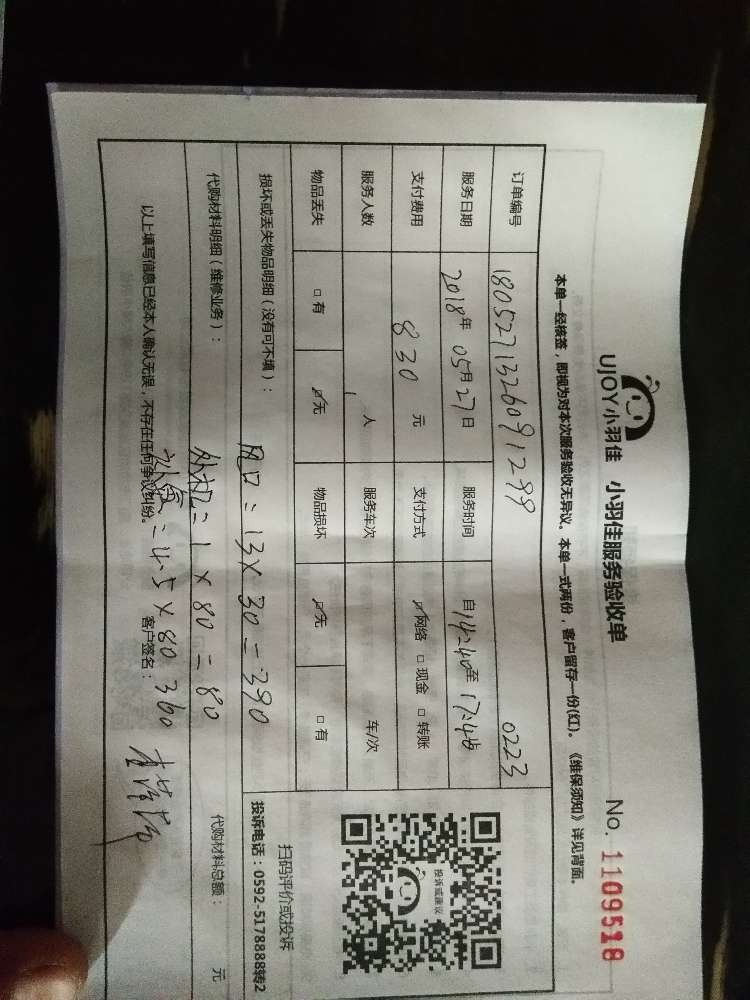 UJOY小羽佳 小羽佳服务验收单 No. 1109518
本单一经核签，即视为对本次服务验收无异议。本单一式两份，客户留存一份(红)。《维保须知》详见背面。
订单编号 18052713260912 0223
服务日期 2018年05月27日 服务时间 自14:40至17:46
支付费用 830元 支付方式 ☑网络 □现金 □转账
服务人数 1人 服务车次 车/次
物品丢失 □有 ☑无 物品损坏 ☑无 □有
投诉或建议
扫码评价或投诉
投诉电话：0592-5178888转2
损坏或丢失物品明细（没有可不填）：
风口：13×30=390
代购材料明细（维修业务）：
外机：1×80=80
代购材料总额： 元
以上填写信息已经本人确认无误，不存在任何争议纠纷。
补氟：4.5×80 360
客户签名：